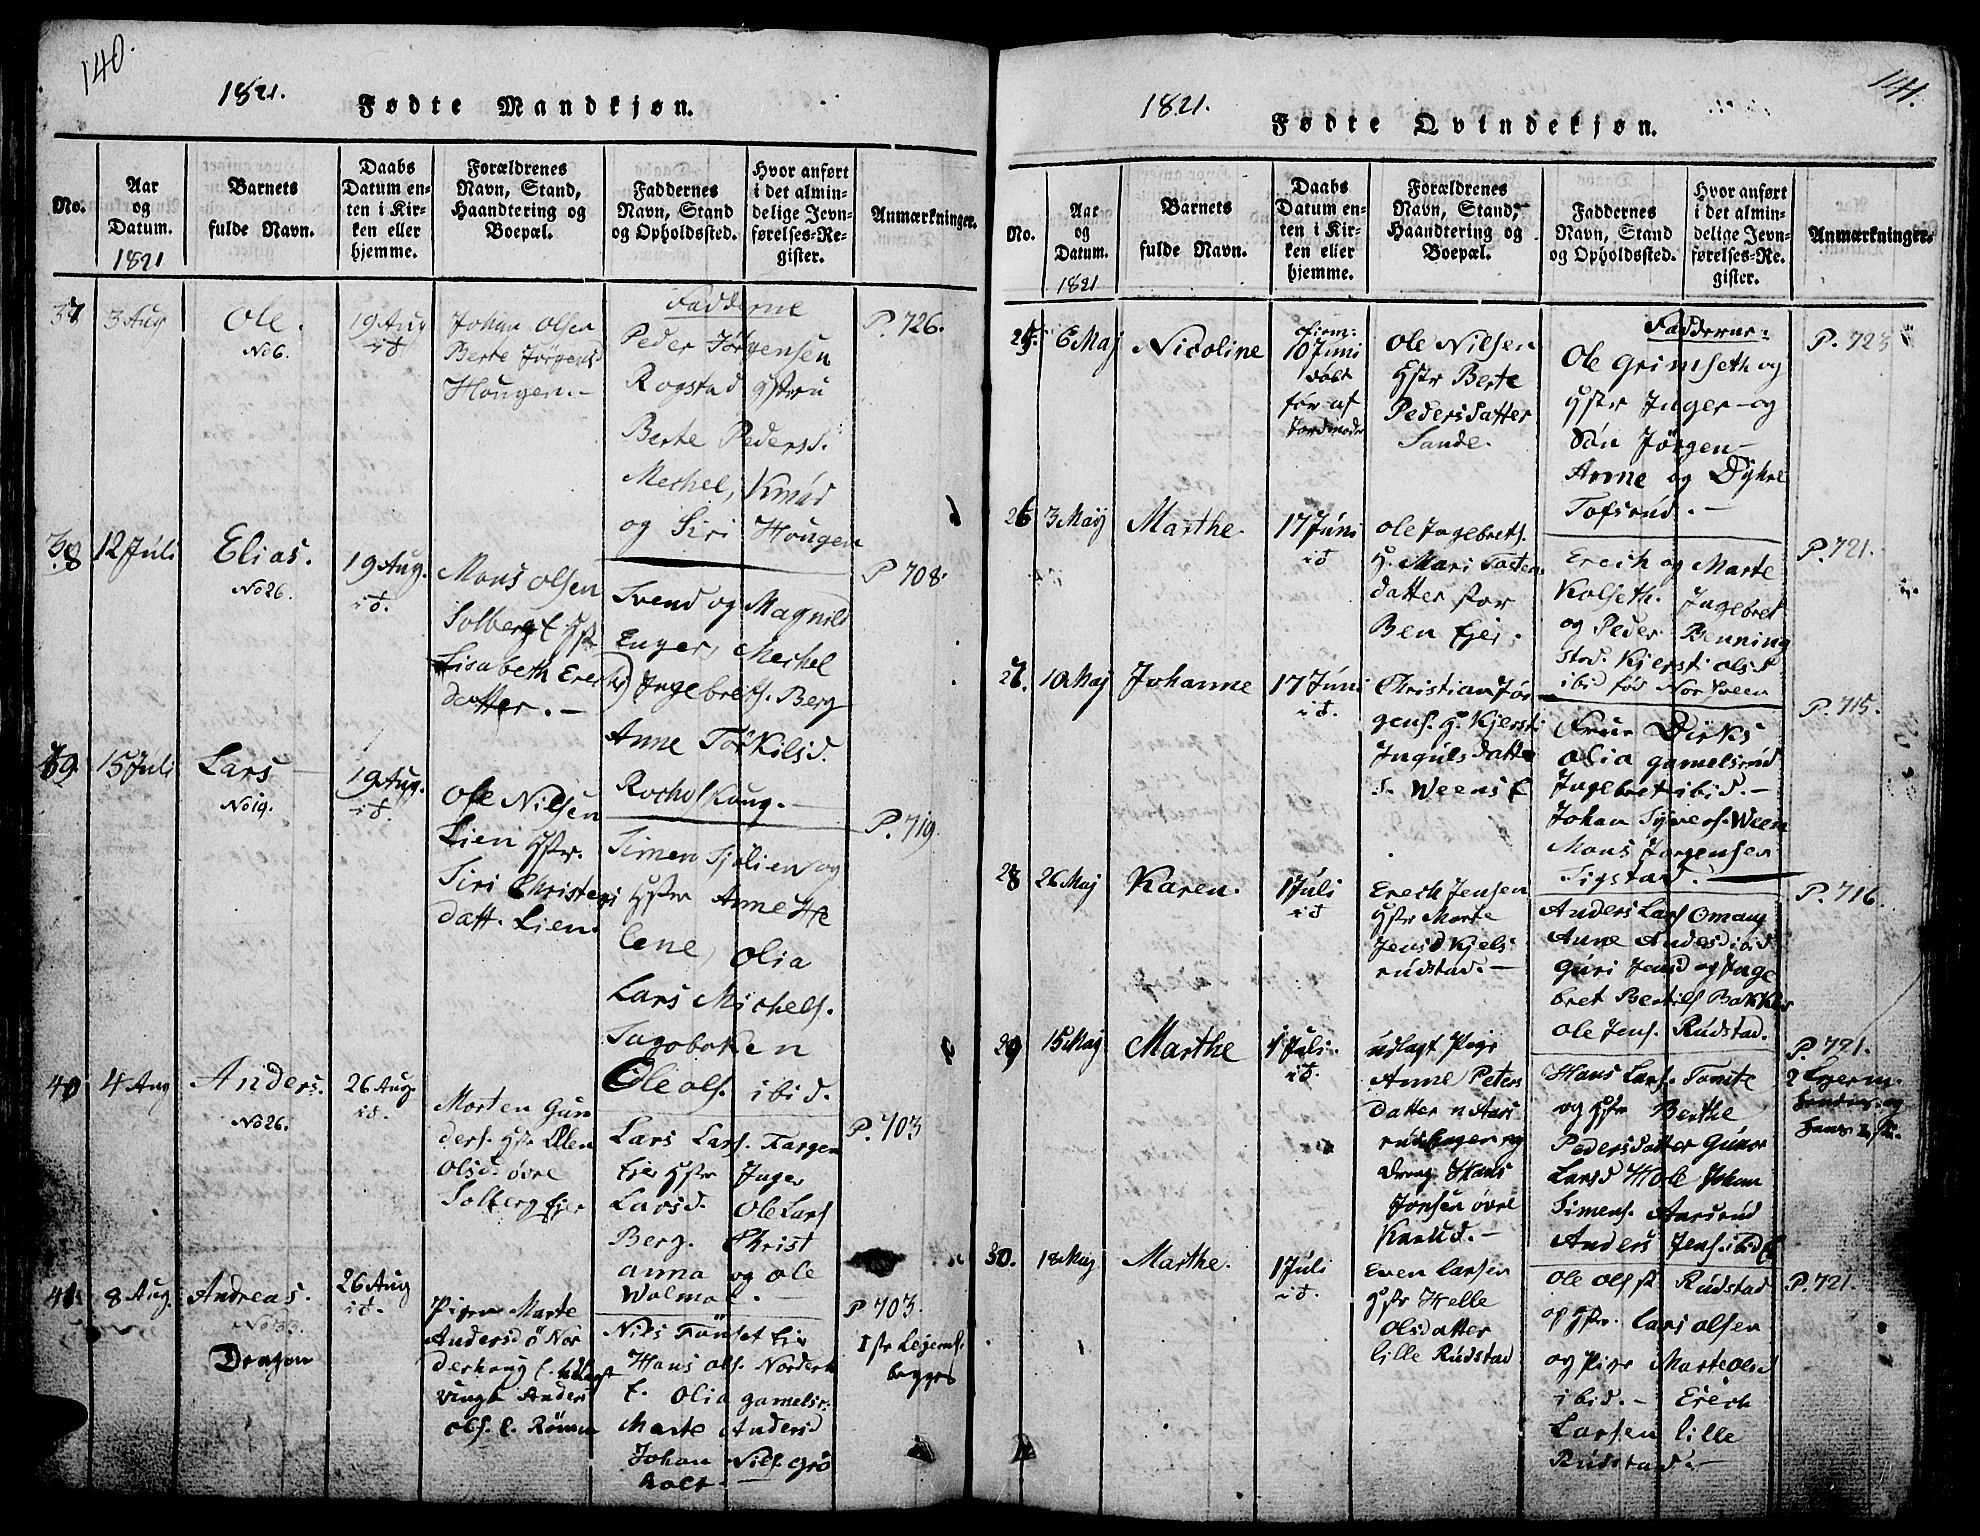 140.
1821.
Fødte Mandkjøn.
No.
Aar
og
Datum.
1821
Barnets
fulde Navn.
Daabs
Datum en-
ten i Kir-
ken eller
hjemme.
Forældrenes
Navn, Stand,
Haandtering og
Boepæl.
Faddernes
Navn, Stand
og Opholdssted.
Hvor anført
i det almin-
delige Jevn-
førelses-Re-
gister.
Anmærkninger.
37
3 Aug
Ole.
No 6.
19 Aug
i d
Johan Olsen
Berte Jørgensd
Hougen.-
Fadderne
Peder Jørgensen
Rogstad Hstru
Berte Pedersd.
Mechel, Kmød
og Siri Hougen
P. 726.
38
12 Juli
Elias.
No 26.
19 Aug.
i d.
Mons Olsen
Solberg E Hstr
Lisabeth Erichs
datter.-
Svend og Magnild
Enger, Mechel
Ingebretſ. Berg
Anne Torkilsd.
Rocholhaug.-
P 708.
39
15 Juli
Lars
No 19.
19 Aug.
i d.
Ole Nilsen
Lien Hstr.
Siri Christens
datt. Lien
Simen Sjølien og
Hstr Anne He
lene, Olia
Lars Michelſ.
Sagobaken
Ole Olſ. ibid.
P. 719.
40
4 Aug
Anders.
No 26.
26 Aug.
i d.
Morten Gun
derſ. Hstr Ellen
Olsd. øvre
Solberg Ejer
Lars Larſ. Fargen
Ejer Hstr Inger
Larsd. Ole Larſ
Berg. Christ
anna og Ole
Wolmoe.-
P. 703
41.
8 Aug.
Andreas.
No 33.
Dragon
26 Aug
i d.
Pigen Marte
Andersd ø Nor
derhoug E. udlagt
Ungk Anders
Olſ. E. Römen
Nils Fönset Eie
Hans Olſ. Norderh
E. Olia gamelsr.
Marte Andersd
Johan Nilſ. Grö
holt.
P 703.
1ste Lejermſ.
begges
141.
1821.
Fødte Qvindekjøn.
No.
Aar
og
Datum.
1821
Barnets
fulde Navn.
Daabs
Datum en-
ten i Kir-
ken eller
hjemme.
Forældrenes
Navn, Stand,
Haandtering og
Boepæl.
Faddernes
Navn, Stand
og Opholdssted.
Hvor anført
i det almin-
delige Jevn-
førelses-Re-
gister.
Anmærkninger.
25.
6 Maj
Nicoline
10 Juni
døbt
før af
Jordmoder
Ole Nilsen
Hstr Berte
Pedersdatter
Sande.
Fadderne:
Ole Grimseth og
Hstr Inger og
Søn Jörgen
Anne og Dykre
Tofsrud.-
P. 723
26
3 Maij
Marthe.
17 Juni
i d
Ole Ingebretſ.
H. Mari Tosten
datter Stor
Ben Ejer.
Erich og Marte
Kolseth. Ingebret
og Peder Benning
stad. Kjersti Olsd
ibid
P. 721.
27.
10 Maj
Johanne
17 Juni
i d.
Christian Jør
genſ. H. Kjersti
Ingulsdatter
S. Weens E
Frue Dirks
Olia gamelsrud
Ingebret ibid.-
Johan Syverſ. Ween
Mons Jørgensen
Sigstad.
P. 715.
28
26 Maj
Karen.
1 Juli
i d
Erich Jensen
Hstr Marte
Jensd Kjels
rudstad.-
Anders Larſ Omang
Anne Andersd ibid
Guri Jensd og Inge
bret Bertilſ Bakker
Ole Jenſ. Rudstad.
P. 716.
29
15 Maj
Marthe
1 Juli.
i d.
udlagt Pige
Anne Peters
datter n Aars
rudhagen og
dreng Hans
Jonsen øvre
Knrud.-
Hans Larſ. Tomte
og Hstr Berthe
Pedersdatter Guner
Larsd Hole Johan
Simenſ. Aarsrud
Anders Jenſ. ibid E
P. 721.
2 Lejerm.
30.
18 Maj
Marthe.
1 Juli
i d.
Even Larsen
Hstr Helle
Olsdatter
lille Rudstad
Ole Olſ st Rudstad
og Hstr. Lars Olsen
og Pige Marte Olsd
ibid.- Erich
Larsen lille
Rudstad.-
P. 721.